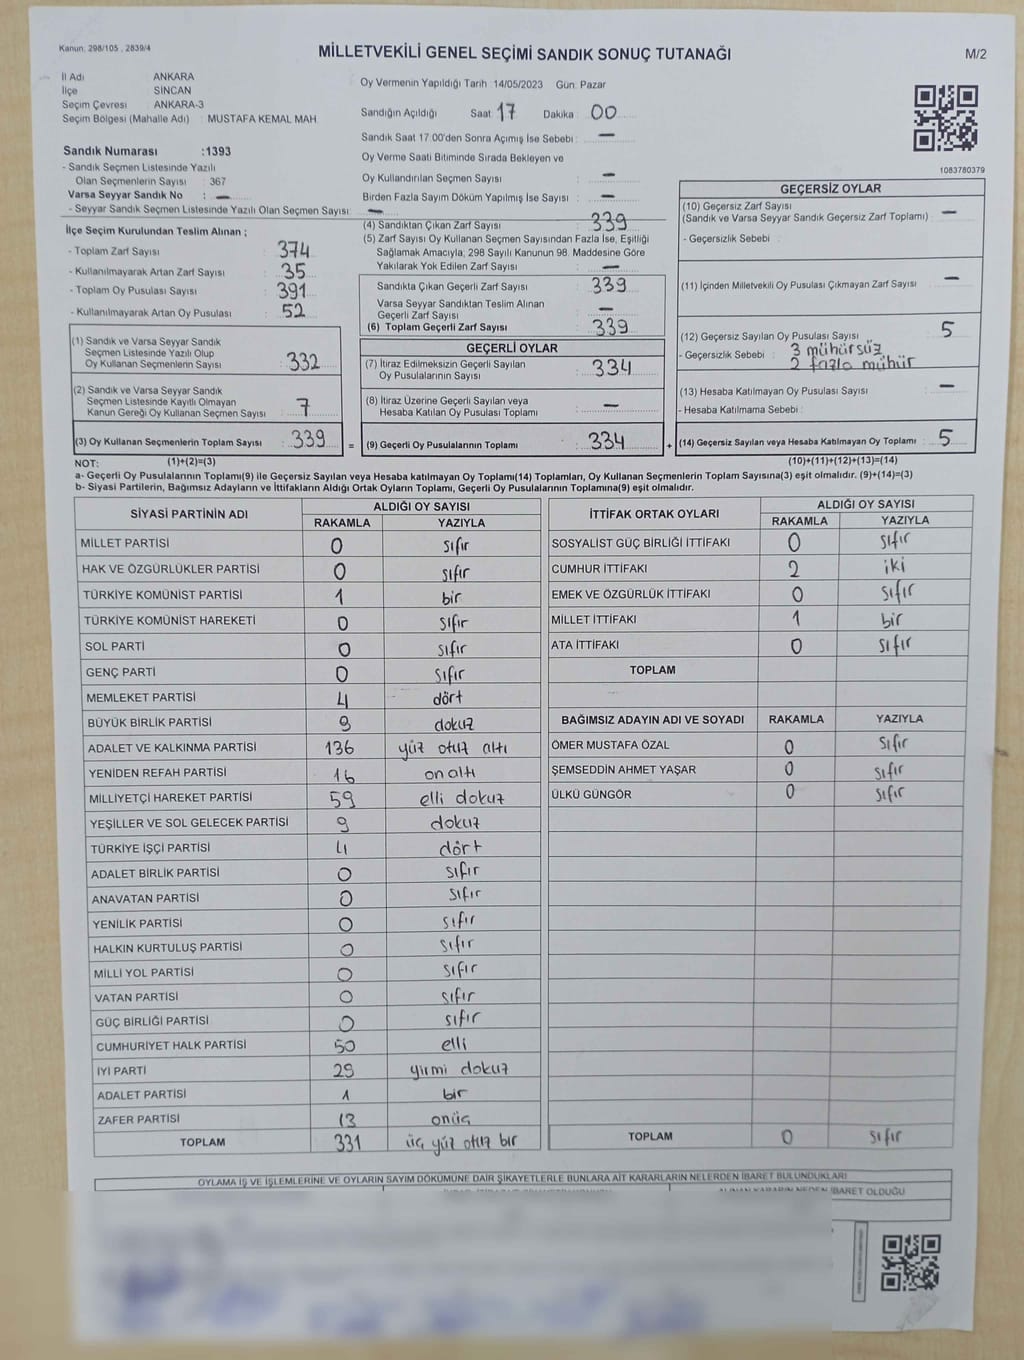 Kanun: 298/105 , 2839/4
MİLLETVEKİLİ GENEL SEÇİMİ SANDIK SONUÇ TUTANAĞI
M/2
İl Adı ANKARA
İlçe SİNCAN
Seçim Çevresi : ANKARA-3
Seçim Bölgesi (Mahalle Adı) : MUSTAFA KEMAL MAH.
Oy Vermenin Yapıldığı Tarih : 14/05/2023 Gün: Pazar
Sandığın Açıldığı Saat 17 Dakika 00
Sandık Saat 17.00'den Sonra Açımış İse Sebebi : —
Oy Verme Saati Bitiminde Sırada Bekleyen ve
Oy Kullandırılan Seçmen Sayısı : —
Birden Fazla Sayım Döküm Yapılmış İse Sayısı : —
1083780379
Sandık Numarası :1393
- Sandık Seçmen Listesinde Yazılı
Olan Seçmenlerin Sayısı : 367
Varsa Seyyar Sandık No : —
- Seyyar Sandık Seçmen Listesinde Yazılı Olan Seçmen Sayısı : —
İlçe Seçim Kurulundan Teslim Alınan ;
- Toplam Zarf Sayısı : 374
- Kullanılmayarak Artan Zarf Sayısı : 35
- Toplam Oy Pusulası Sayısı : 391
- Kullanılmayarak Artan Oy Pusulası : 52
(1) Sandık ve Varsa Seyyar Sandık
Seçmen Listesinde Yazılı Olup
Oy Kullanan Seçmenlerin Sayısı : 332
(2) Sandık ve Varsa Seyyar Sandık
Seçmen Listesinde Kayıtlı Olmayan
Kanun Gereği Oy Kullanan Seçmen Sayısı : 7
(3) Oy Kullanan Seçmenlerin Toplam Sayısı : 339
(4) Sandıktan Çıkan Zarf Sayısı : 339
(5) Zarf Sayısı Oy Kullanan Seçmen Sayısından Fazla İse, Eşitliği
Sağlamak Amacıyla, 298 Sayılı Kanunun 98. Maddesine Göre
Yakılarak Yok Edilen Zarf Sayısı : —
Sandıkta Çıkan Geçerli Zarf Sayısı : 339
Varsa Seyyar Sandıktan Teslim Alınan
Geçerli Zarf Sayısı : —
(6) Toplam Geçerli Zarf Sayısı : 339
GEÇERLİ OYLAR
(7) İtiraz Edilmeksizin Geçerli Sayılan
Oy Pusulalarının Sayısı : 334
(8) İtiraz Üzerine Geçerli Sayılan veya
Hesaba Katılan Oy Pusulası Toplamı : —
= (9) Geçerli Oy Pusulalarının Toplamı : 334
GEÇERSİZ OYLAR
(10) Geçersiz Zarf Sayısı
(Sandık ve Varsa Seyyar Sandık Geçersiz Zarf Toplamı) : —
- Geçersizlik Sebebi :
(11) İçinden Milletvekili Oy Pusulası Çıkmayan Zarf Sayısı : —
(12) Geçersiz Sayılan Oy Pusulası Sayısı : 5
- Geçersizlik Sebebi : 3 mühürsüz
2 fazla mühür
(13) Hesaba Katılmayan Oy Pusulası Sayısı : —
- Hesaba Katılmama Sebebi :
+ (14) Geçersiz Sayılan veya Hesaba Katılmayan Oy Toplamı : 5
NOT: (1)+(2)=(3)
(10)+(11)+(12)+(13)=(14)
a- Geçerli Oy Pusulalarının Toplamı(9) ile Geçersiz Sayılan veya Hesaba katılmayan Oy Toplamı(14) Toplamları, Oy Kullanan Seçmenlerin Toplam Sayısına(3) eşit olmalıdır. (9)+(14)=(3)
b- Siyasi Partilerin, Bağımsız Adayların ve İttifakların Aldığı Ortak Oyların Toplamı, Geçerli Oy Pusulalarının Toplamına(9) eşit olmalıdır.
SİYASİ PARTİNİN ADI ALDIĞI OY SAYISI
RAKAMLA YAZIYLA
MİLLET PARTİSİ 0 sıfır
HAK VE ÖZGÜRLÜKLER PARTİSİ 0 sıfır
TÜRKİYE KOMÜNİST PARTİSİ 1 bir
TÜRKİYE KOMÜNİST HAREKETİ 0 sıfır
SOL PARTİ 0 sıfır
GENÇ PARTİ 0 sıfır
MEMLEKET PARTİSİ 4 dört
BÜYÜK BİRLİK PARTİSİ 9 dokuz
ADALET VE KALKINMA PARTİSİ 136 yüz otuz altı
YENİDEN REFAH PARTİSİ 16 onaltı
MİLLİYETÇİ HAREKET PARTİSİ 59 elli dokuz
YEŞİLLER VE SOL GELECEK PARTİSİ 9 dokuz
TÜRKİYE İŞÇİ PARTİSİ 4 dört
ADALET BİRLİK PARTİSİ 0 sıfır
ANAVATAN PARTİSİ 0 sıfır
YENİLİK PARTİSİ 0 sıfır
HALKIN KURTULUŞ PARTİSİ 0 sıfır
MİLLİ YOL PARTİSİ 0 sıfır
VATAN PARTİSİ 0 sıfır
GÜÇ BİRLİĞİ PARTİSİ 0 sıfır
CUMHURİYET HALK PARTİSİ 50 elli
İYİ PARTİ 29 yirmi dokuz
ADALET PARTİSİ 1 bir
ZAFER PARTİSİ 13 onüç
TOPLAM 331 üç yüz otuz bir
İTTİFAK ORTAK OYLARI ALDIĞI OY SAYISI
RAKAMLA YAZIYLA
SOSYALİST GÜÇ BİRLİĞİ İTTİFAKI 0 sıfır
CUMHUR İTTİFAKI 2 iki
EMEK VE ÖZGÜRLÜK İTTİFAKI 0 sıfır
MİLLET İTTİFAKI 1 bir
ATA İTTİFAKI 0 sıfır
TOPLAM
BAĞIMSIZ ADAYIN ADI VE SOYADI RAKAMLA YAZIYLA
ÖMER MUSTAFA ÖZAL 0 sıfır
ŞEMSEDDİN AHMET YAŞAR 0 sıfır
ÜLKÜ GÜNGÖR 0 sıfır
TOPLAM 0 sıfır
OYLAMA İŞ VE İŞLEMLERİNE VE OYLARIN SAYIM DÖKÜMÜNE DAİR ŞİKAYETLERLE BUNLARA AİT KARARLARIN NELERDEN İBARET BULUNDUKLARI
ALINAN KARARIN NEDEN İBARET OLDUĞU